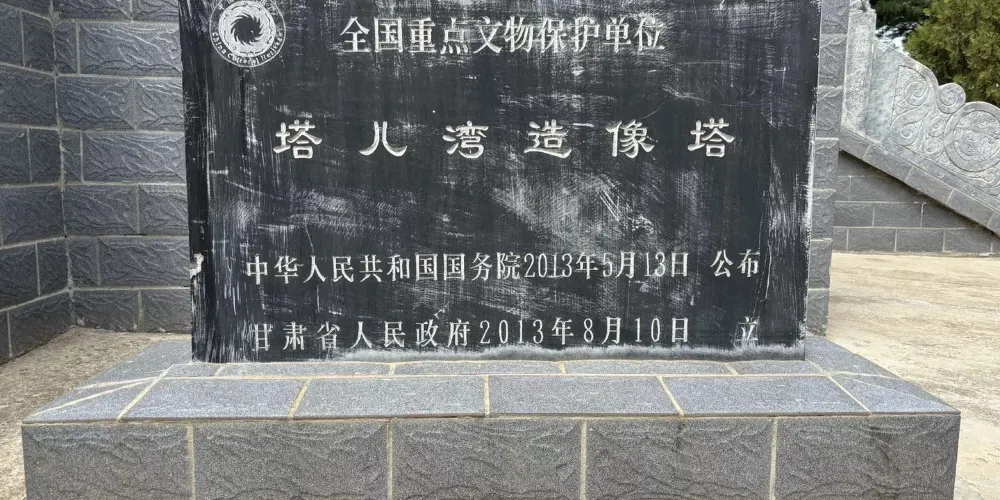 全国重点文物保护单位
塔儿湾造像塔
中华人民共和国国务院2013年5月13日 公布
甘肃省人民政府2013年8月10日 立